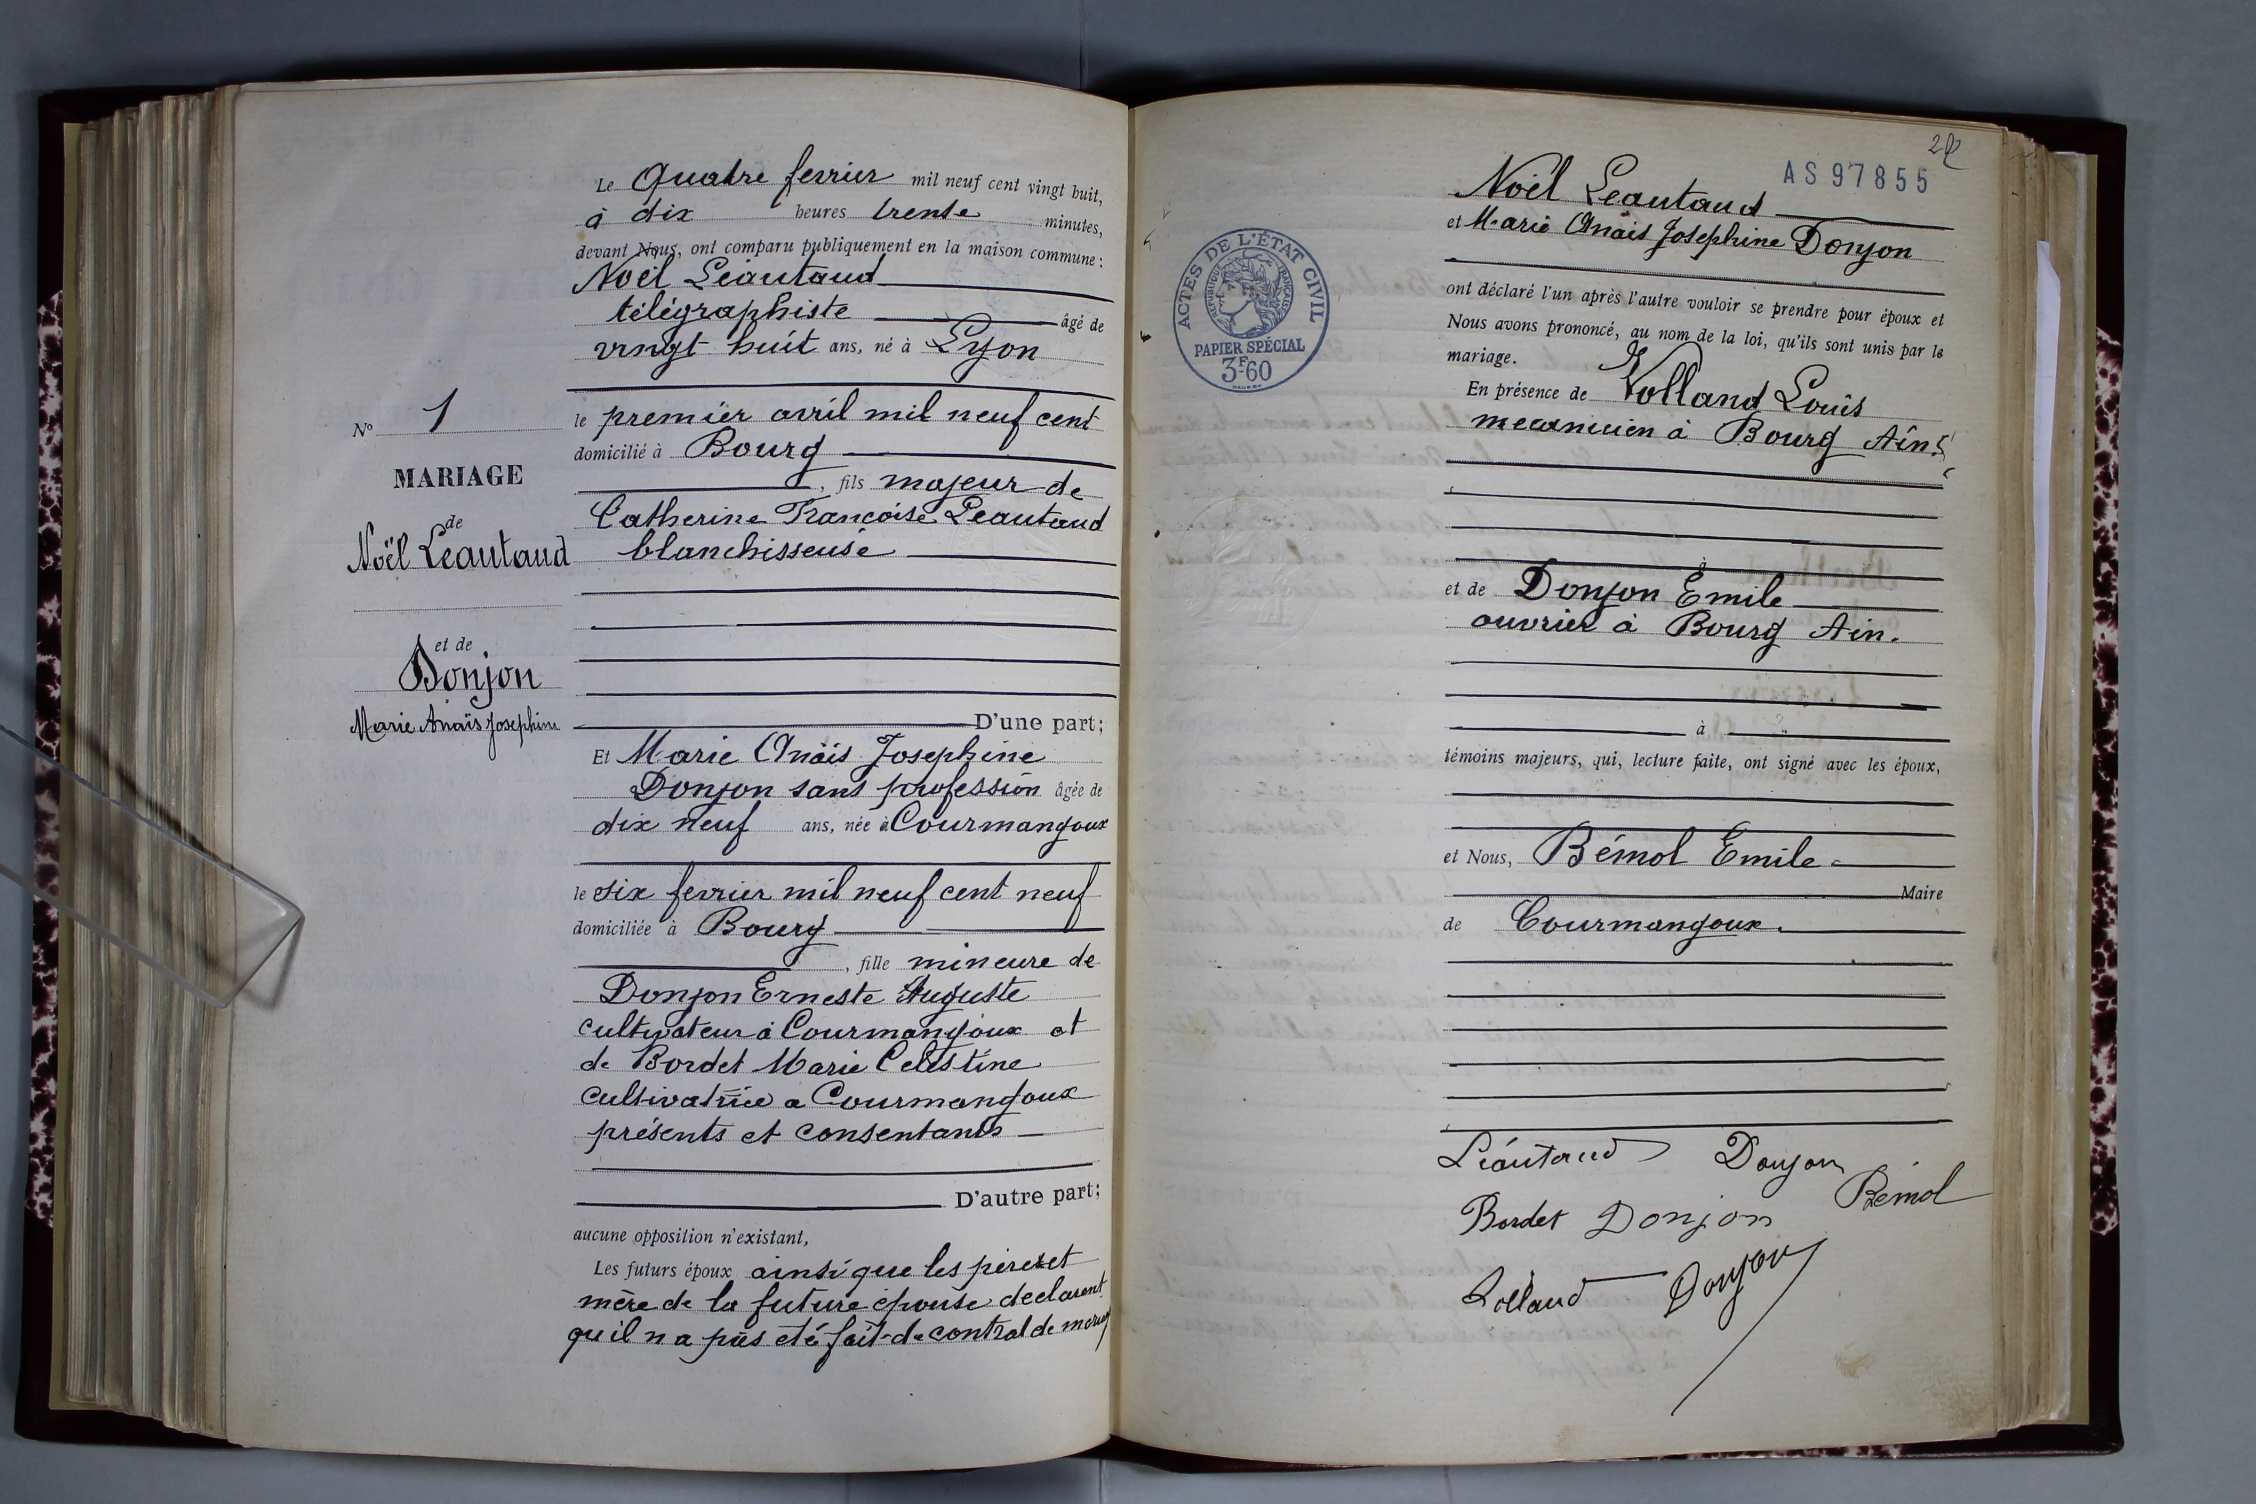 Le Quatre fevrier mil neuf cent vingt huit,
à dix heures trente minutes,
devant Nous, ont comparu publiquement en la maison commune :
Noël Léautaud
télégraphiste âgé de
vingt huit ans, né à Lyon
le premier avril mil neuf cent
domicilié à Bourg
, fils majeur de
Catherine Francoise Leautaud
blanchisseuse
D'une part;
Et Marie Anaïs Josephine
Donjon sans profession âgée de
dix neuf ans, née à Courmangoux
le six fevrier mil neuf cent neuf
domiciliée à Bourg
, fille mineure de
Donjon Erneste Auguste
cultivateur à Courmangoux et
de Bordet Marie Celestine
cultivatrice a Courmangoux
présents et consentants
D'autre part;
aucune opposition n'existant,
Les futurs époux ainsi que les père et
mère de la future épouse declarent
qu'il n a pas eté fait de contrat de mariag
No 1
MARIAGE
de
Noël Leautaud
et de
Donjon
Marie Anaïs Josephine
AS 97855
Noël Leautaud
et Marie Anaïs Josephine Donjon
ont déclaré l'un après l'autre vouloir se prendre pour époux et
Nous avons prononcé, au nom de la loi, qu'ils sont unis par le
mariage.
En présence de Volland Louis
mecanicien à Bourg Ain
à
et de Donjon Emile
ouvrier à Bourg Ain.
à
témoins majeurs, qui, lecture faite, ont signé avec les époux,
et Nous, Bémol Emile
Maire
de Courmangoux.
Léautaud Donjon
Bémol
Bordet Donjon
Volland Donjon
ACTES DE L'ÉTAT CIVIL
RÉPUBLIQUE FRANÇAISE
PAPIER SPÉCIAL
3F60